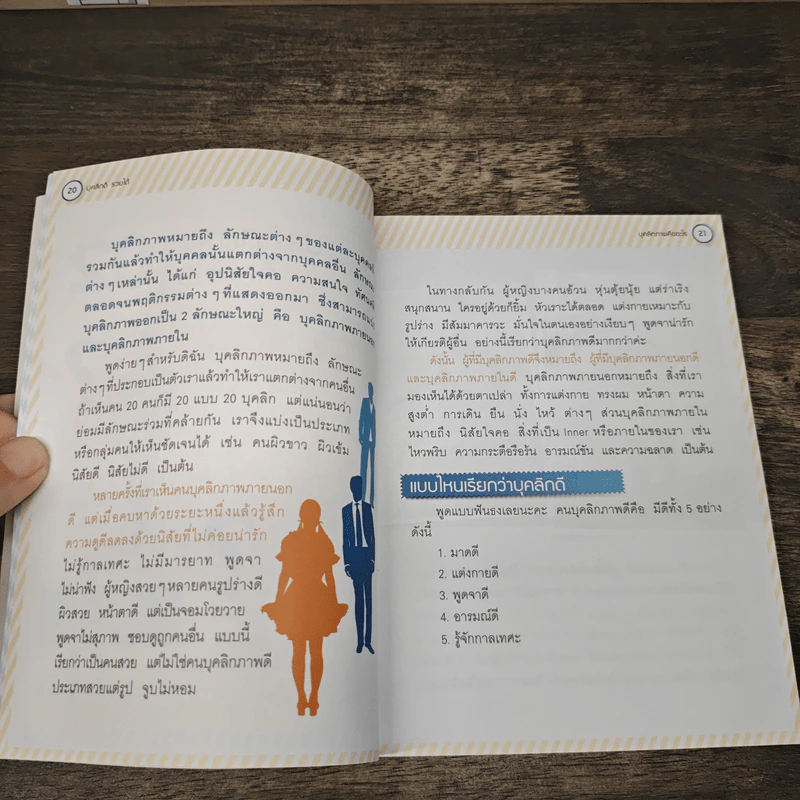 20
บุคลิกดี รวยได้
บุคลิกภาพหมายถึง ลักษณะต่างๆของแต่ละบุคคล
รวมกันแล้วทำให้บุคคลนั้นแตกต่างจากบุคคลอื่น
ต่างๆเหล่านั้น ได้แก่ อุปนิสัยใจคอ ความสนใจ
ตลอดจนพฤติกรรมต่างๆที่แสดงออกมา
บุคลิกภาพออกเป็น 2 ลักษณะใหญ่ คือ บุคลิกภาพภายนอก
และบุคลิกภาพภายใน
พูดง่ายๆสำหรับดิฉัน บุคลิกภาพหมายถึง ลักษณะ
ต่างๆที่ประกอบเป็นตัวเราแล้วทำให้เราแตกต่างจากคนอื่น
ถ้าเห็นคน 20 คนก็มี 20 แบบ 20 บุคลิก แต่แน่นอนว่า
ย่อมมีลักษณะร่วมที่คล้ายกัน เราจึงแบ่งเป็นประเภท
หรือกลุ่มคนให้เห็นชัดเจนได้ เช่น คนผิวขาว ผิวเข้ม
นิสัยดี นิสัยไม่ดี เป็นต้น
หลายครั้งที่เราเห็นคนบุคลิกภาพภายนอก
ดี แต่เมื่อคบหาด้วยระยะหนึ่งแล้วรู้สึก
ความดูดีลดลงด้วยนิสัยที่ไม่ค่อยน่ารัก
ไม่รู้กาลเทศะ ไม่มีมารยาท พูดจา
ไม่น่าฟัง ผู้หญิงสวยๆหลายคนรูปร่างดี
ผิวสวย หน้าตาดี แต่เป็นจอมโวยวาย
พูดจาไม่สุภาพ ชอบดูถูกคนอื่น แบบนี้
เรียกว่าเป็นคนสวย แต่ไม่ใช่คนบุคลิกภาพดี
ประเภทสวยแต่รูป จูบไม่หอม
บุคลิกภาพคืออะไร
21
ในทางกลับกัน ผู้หญิงบางคนอ้วน หุ่นตุ้ยนุ้ย แต่ร่าเริง
สนุกสนาน ใครอยู่ด้วยก็ยิ้ม หัวเราะได้ตลอด แต่งกายเหมาะกับ
รูปร่าง มีสัมมาคารวะ มั่นใจในตนเองอย่างเงียบๆ พูดจาน่ารัก
ให้เกียรติผู้อื่น อย่างนี้เรียกว่าบุคลิกภาพดีมากกว่าค่ะ
ดังนั้น ผู้ที่มีบุคลิกภาพดีจึงหมายถึง ผู้ที่มีบุคลิกภาพภายนอกดี
และบุคลิกภาพภายในดี บุคลิกภาพภายนอกหมายถึง สิ่งที่เรา
มองเห็นได้ด้วยตาเปล่า ทั้งการแต่งกาย ทรงผม หน้าตา ความ
สูงต่ำ การเดิน ยืน นั่ง ไหว้ ต่างๆ ส่วนบุคลิกภาพภายใน
หมายถึง นิสัยใจคอ สิ่งที่เป็น Inner หรือภายในของเรา เช่น
ไหวพริบ ความกระตือรือร้น อารมณ์ขัน และความฉลาด เป็นต้น
แบบไหนเรียกว่าบุคลิกดี
พูดแบบฟันธงเลยนะคะ คนบุคลิกภาพดีคือ มีดีทั้ง 5 อย่าง
ดังนี้
1. มาดดี
2. แต่งกายดี
3. พูดจาดี
4. อารมณ์ดี
5. รู้จักกาลเทศะ